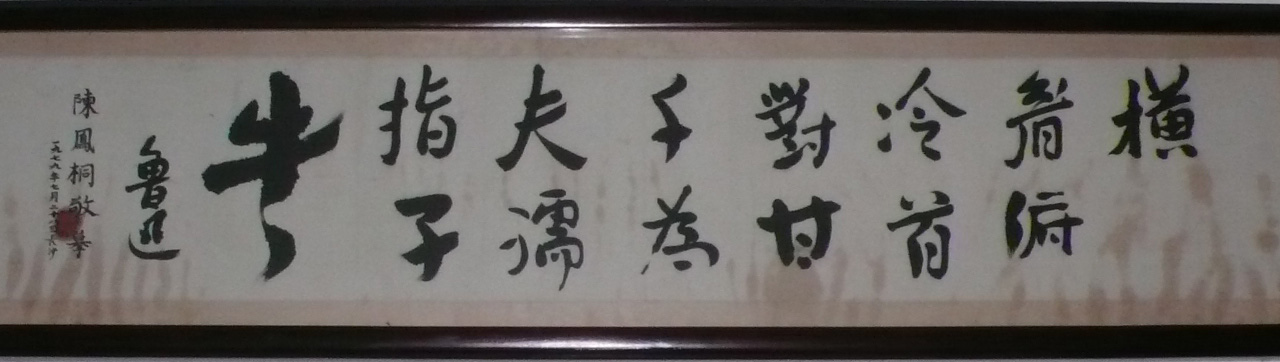 横眉冷對千夫指
俯首甘為孺子牛
魯迅
陳鳳桐敬摹
一九七九年七月二十